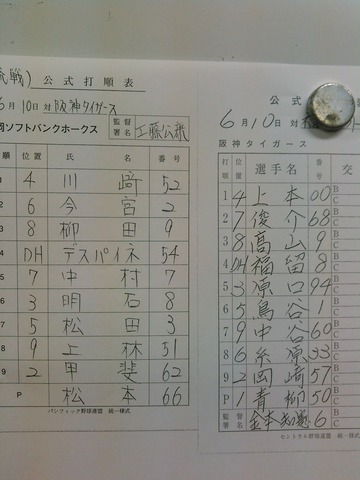 流戦) 公式打順表
6月10日対阪神タイガース
岡ソフトバンクホークス 監督署名 工藤公康
順 位置 氏名 番号
1 4 川﨑 52
2 6 今宮 2
3 8 柳田 9
4 DH デスパイネ 54
5 7 中村 7
6 3 明石 8
7 5 松田 3
8 9 上林 51
9 2 甲斐 62
P 松本 66
パシフィック野球連盟 統一様式
公式
6月10日対
阪神タイガース
打順 位置 選手名 番号 交
1 4 上本 00 B C
2 7 俊介 68 B C
3 8 高山 9 B C
4 DH 福留 8 B C
5 3 原口 94 B C
6 5 鳥谷 1 B C
7 9 中谷 60 B C
8 6 糸原 33 B C
9 2 岡﨑 57 B C
P 1 青柳 50 B C
監督署名 金本知憲 6 B C
セントラル野球連盟 統一様式